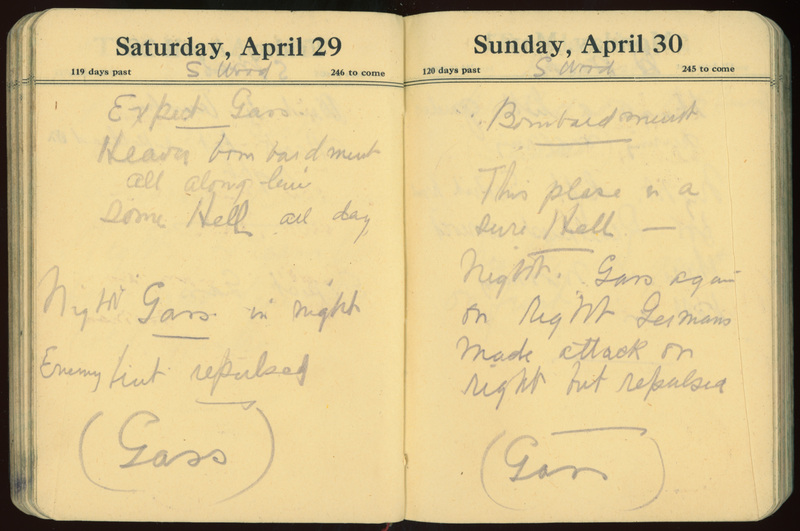 Saturday, April 29
119 days past
S Wood
246 to come
Expect Gass
Heavy bombardment
all along line
Some Hell all day
Night Gass in night
Enemy but repulsed
(Gass)
Sunday, April 30
120 days past
S Wood
245 to come
Bombardment
This place is a
sure Hell —
Night. Gass again
on right Germans
made attack on
right but repulsed
(Gass)